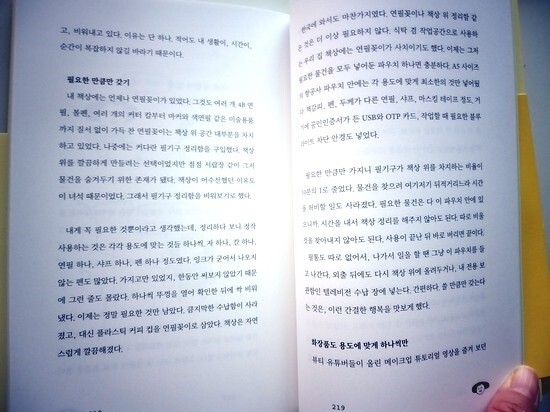 고, 비워내고 있다. 이유는 단 하나. 적어도 내 생활이, 시간이,
순간이 복잡하지 않길 바라기 때문이다.
필요한 만큼만 갖기
내 책상에는 언제나 연필꽂이가 있었다. 그것도 여러 개. 4B 연
필, 볼펜, 여러 개의 커터 칼부터 마커와 색연필 같은 미술용품
까지 질서 없이 가득 찬 연필꽂이는 책상 위 공간 대부분을 차지
하고 있었다. 나중에는 커다란 필기구 정리함을 구입했다. 책상
위를 깔끔하게 만들려는 선택이었지만 점점 서랍장 같이 그저
물건을 숨겨두기 위한 존재가 됐다. 책상이 어수선했던 이유도
이 녀석 때문이었다. 그래서 필기구 정리함을 비워보기로 했다.
내게 꼭 필요한 것뿐이라고 생각했는데, 정리하다 보니 정작
사용하는 것은 각각 용도에 맞는 것들 하나씩, 자 하나, 칼 하나,
연필 하나, 샤프 하나, 펜 하나 정도였다. 잉크가 굳어서 나오지
않는 펜도 많았다. 가지고만 있었지, 한동안 써보지 않았기 때문
에 그런 줄도 몰랐다. 하나씩 뚜껑을 열어 확인한 뒤에 싹 비워
냈다. 이제는 정말 필요한 것만 남았다. 큼지막한 수납함이 사라
졌고, 대신 플라스틱 커피 컵을 연필꽂이로 삼았다. 책상은 자연
스럽게 깔끔해졌다.
218
한국에 와서도 마찬가지였다. 연필꽂이나 책상 위 정리함 같
은 것은 더 이상 필요하지 않다. 식탁 겸 작업공간으로 사용하
는 우리 집 책상에는 연필꽂이가 사치이기도 했다. 이제는 그저
필요한 물건을 모두 넣어둔 파우치 하나면 충분하다. A5 사이즈
의 항공사 파우치 안에는 각 용도에 맞게 최소한의 것만 넣어뒀
다. 책갈피, 펜, 두께가 다른 연필, 샤프, 마스킹 테이프 정도, 거
기에 공인인증서가 든 USB와 OTP 카드, 작업할 때 필요한 블루
라이트 차단 안경도 넣었다.
필요한 만큼만 가지니 필기구가 책상 위를 차지하는 비율이
10분의 1로 줄었다. 물건을 찾으려 여기저기 뒤적거리느라 시간
을 허비할 일도 사라졌다. 필요한 물건은 다 이 파우치 안에 있
으니까. 시간을 내서 책상 정리를 해주지 않아도 된다. 따로 비울
것을 찾아내지 않아도 된다. 사용이 끝난 뒤 바로 버리면 끝이다.
필통도 따로 없어서, 나가서 일을 할 땐 그냥 이 파우치를 들
고 나간다. 외출 뒤에도 다시 책상 위에 올려두거나, 내 전용 보
관함인 텔레비전 수납 장에 넣는다. 간편하다. 쓸 만큼만 갖는다
는 것은, 이런 간결한 행복을 맛보게 했다.
화장품도 용도에 맞게 하나씩만
뷰티 유튜버들이 올린 메이크업 튜토리얼 영상을 즐겨 보던
219